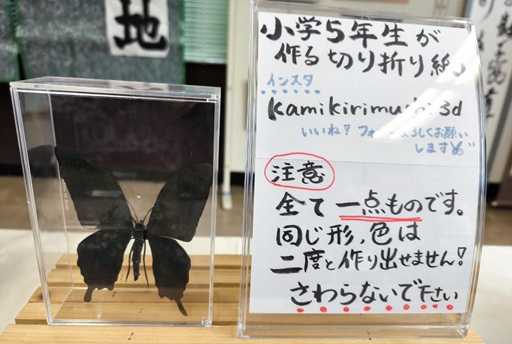 地
小学5年生が
作る切り折り紙
インスタ
kamikirimushi3d
いいね？フォローよろしくお願い
します
注意
全て一点ものです。
同じ形、色は
二度と作り出せません!
さわらないで下さい